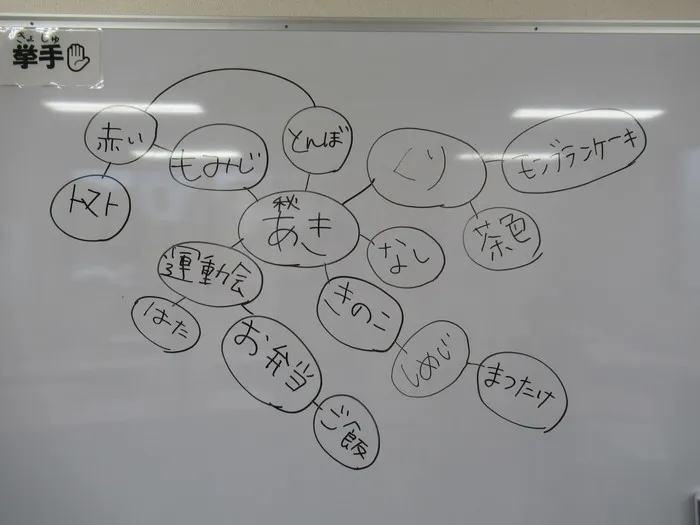 きょ しゅ
挙手
赤い
とんぼ
くり
モンブランケーキ
もみじ
トマト
秋
あき
茶色
なし
運動会
きのこ
はた
お弁当
しめじ
まつたけ
ご飯